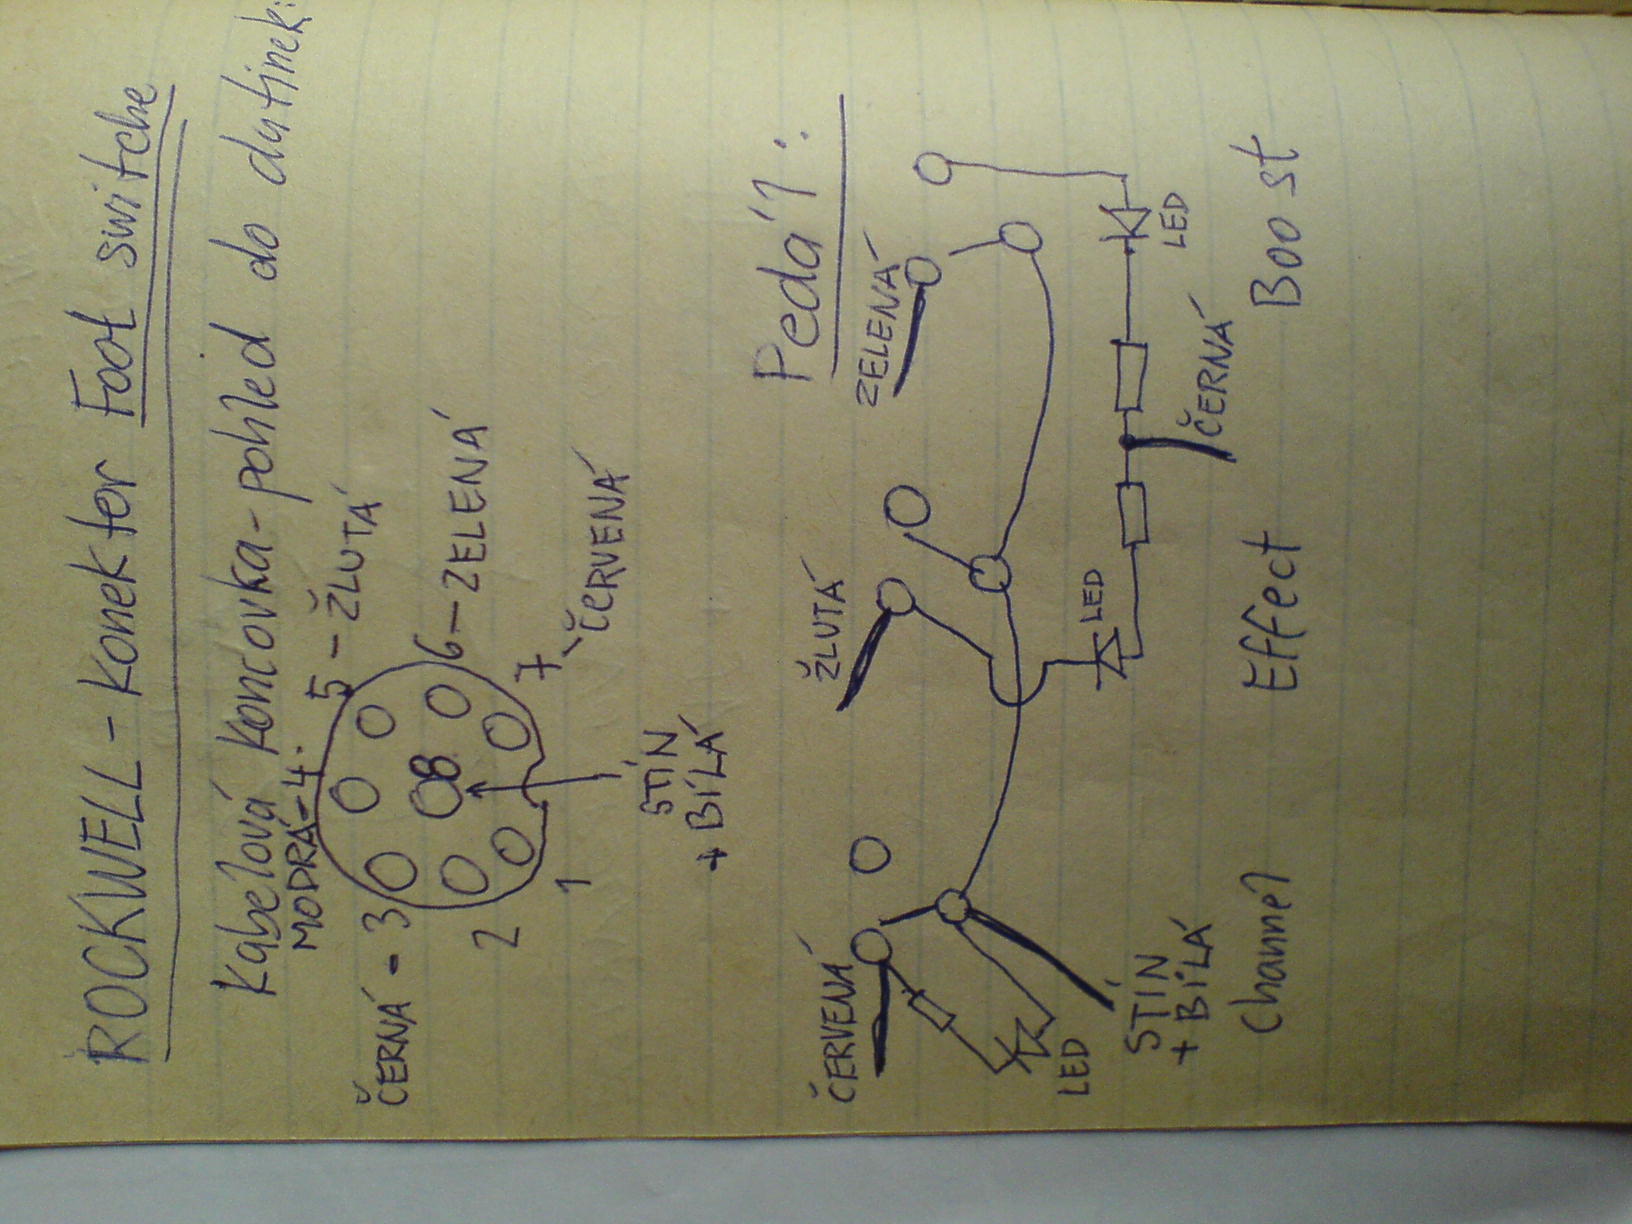 ROCKWELL - Konektor Foot switche
Kabelová koncovka - pohled do dutinek:
MODRÁ - 4.
5 - ŽLUTÁ
ČERNÁ - 3
8
6 - ZELENÁ
2
7 - ČERVENÁ
1
STÍN
+ BÍLÁ
Pedál:
ČERVENÁ
ŽLUTÁ
ZELENÁ
LED
LED
LED
STÍN
+ BÍLÁ
ČERNÁ
Channel
Effect
Boost